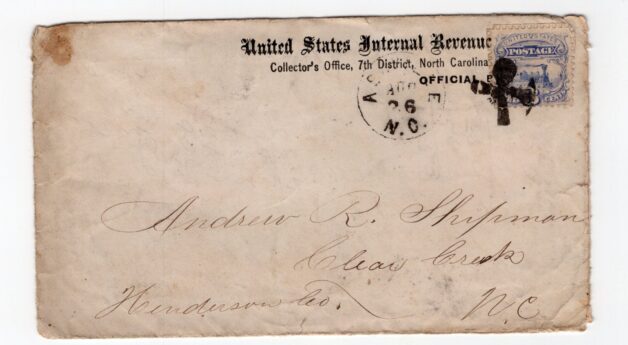 United States Internal Revenue
Collector's Office, 7th District, North Carolina
OFFICIAL
UNITED STATES
POSTAGE
AUG
26
N.C.
Andrew R. Shipman
Clear Creek
Henderson Co. N C